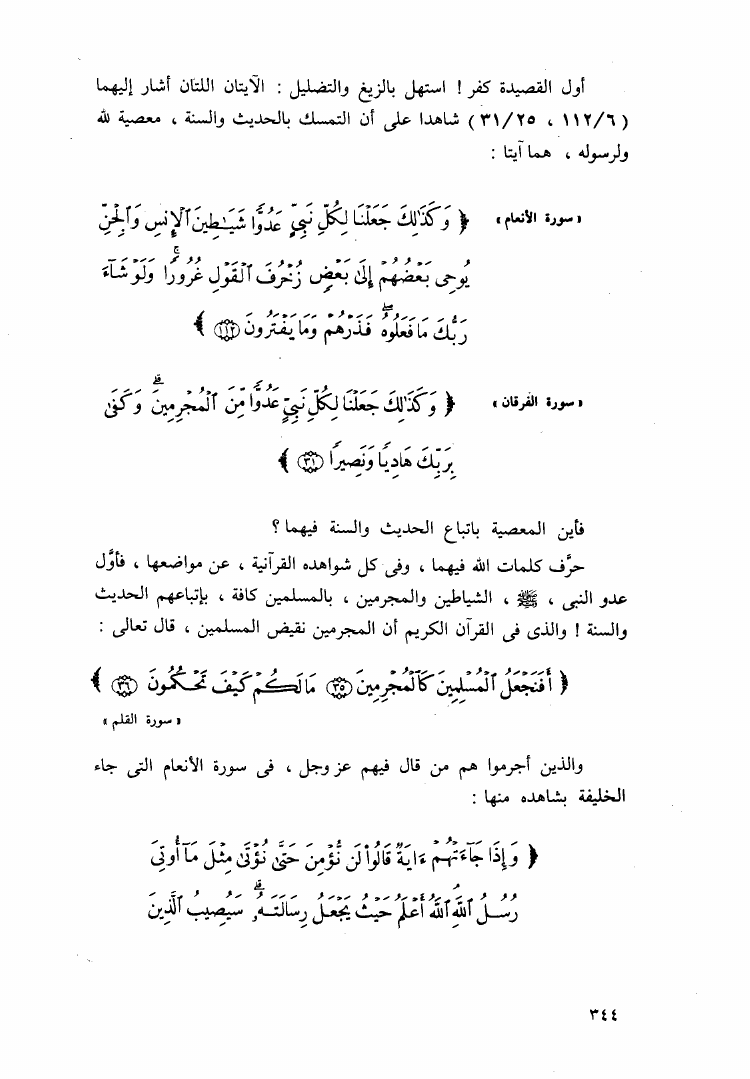 أول القصيدة كفر ! استهل بالزيغ والتضليل : الآيتان اللتان أشار إليهما
( ١١٢/٦ ، ٣١/٢٥ ) شاهدا على أن التمسك بالحديث والسنة ، معصية لله
ولرسوله ، هما آيتا :
« سورة الأنعام » ﴿ وَكَذَٰلِكَ جَعَلْنَا لِكُلِّ نَبِيٍّ عَدُوًّا شَيَٰطِينَ ٱلْإِنسِ وَٱلْجِنِّ
يُوحِى بَعْضُهُمْ إِلَىٰ بَعْضٍ زُخْرُفَ ٱلْقَوْلِ غُرُورًا ۚ وَلَوْ شَآءَ
رَبُّكَ مَا فَعَلُوهُ ۖ فَذَرْهُمْ وَمَا يَفْتَرُونَ ١١٢ ﴾
« سورة الفرقان » ﴿ وَكَذَٰلِكَ جَعَلْنَا لِكُلِّ نَبِيٍّ عَدُوًّا مِّنَ ٱلْمُجْرِمِينَ ۗ وَكَفَىٰ
بِرَبِّكَ هَادِيًا وَنَصِيرًا ٣١ ﴾
فأين المعصية باتباع الحديث والسنة فيهما ؟
حرَّف كلمات الله فيهما ، وفى كل شواهده القرآنية ، عن مواضعها ، فأوَّل
عدو النبى ، ﷺ ، الشياطين والمجرمين ، بالمسلمين كافة ، بإتباعهم الحديث
والسنة ! والذى فى القرآن الكريم أن المجرمين نقيض المسلمين ، قال تعالى :
﴿ أَفَنَجْعَلُ ٱلْمُسْلِمِينَ كَٱلْمُجْرِمِينَ ٣٥ مَا لَكُمْ كَيْفَ تَحْكُمُونَ ٣٦ ﴾
« سورة القلم »
والذين أجرموا هم من قال فيهم عز وجل ، فى سورة الأنعام التى جاء
الخليفة بشاهده منها :
﴿ وَإِذَا جَآءَتْهُمْ ءَايَةٌ قَالُوا۟ لَن نُّؤْمِنَ حَتَّىٰ نُؤْتَىٰ مِثْلَ مَآ أُوتِىَ
رُسُلُ ٱللَّهِ ٱللَّهُ أَعْلَمُ حَيْثُ يَجْعَلُ رِسَالَتَهُۥ ۗ سَيُصِيبُ ٱلَّذِينَ
٣٤٤